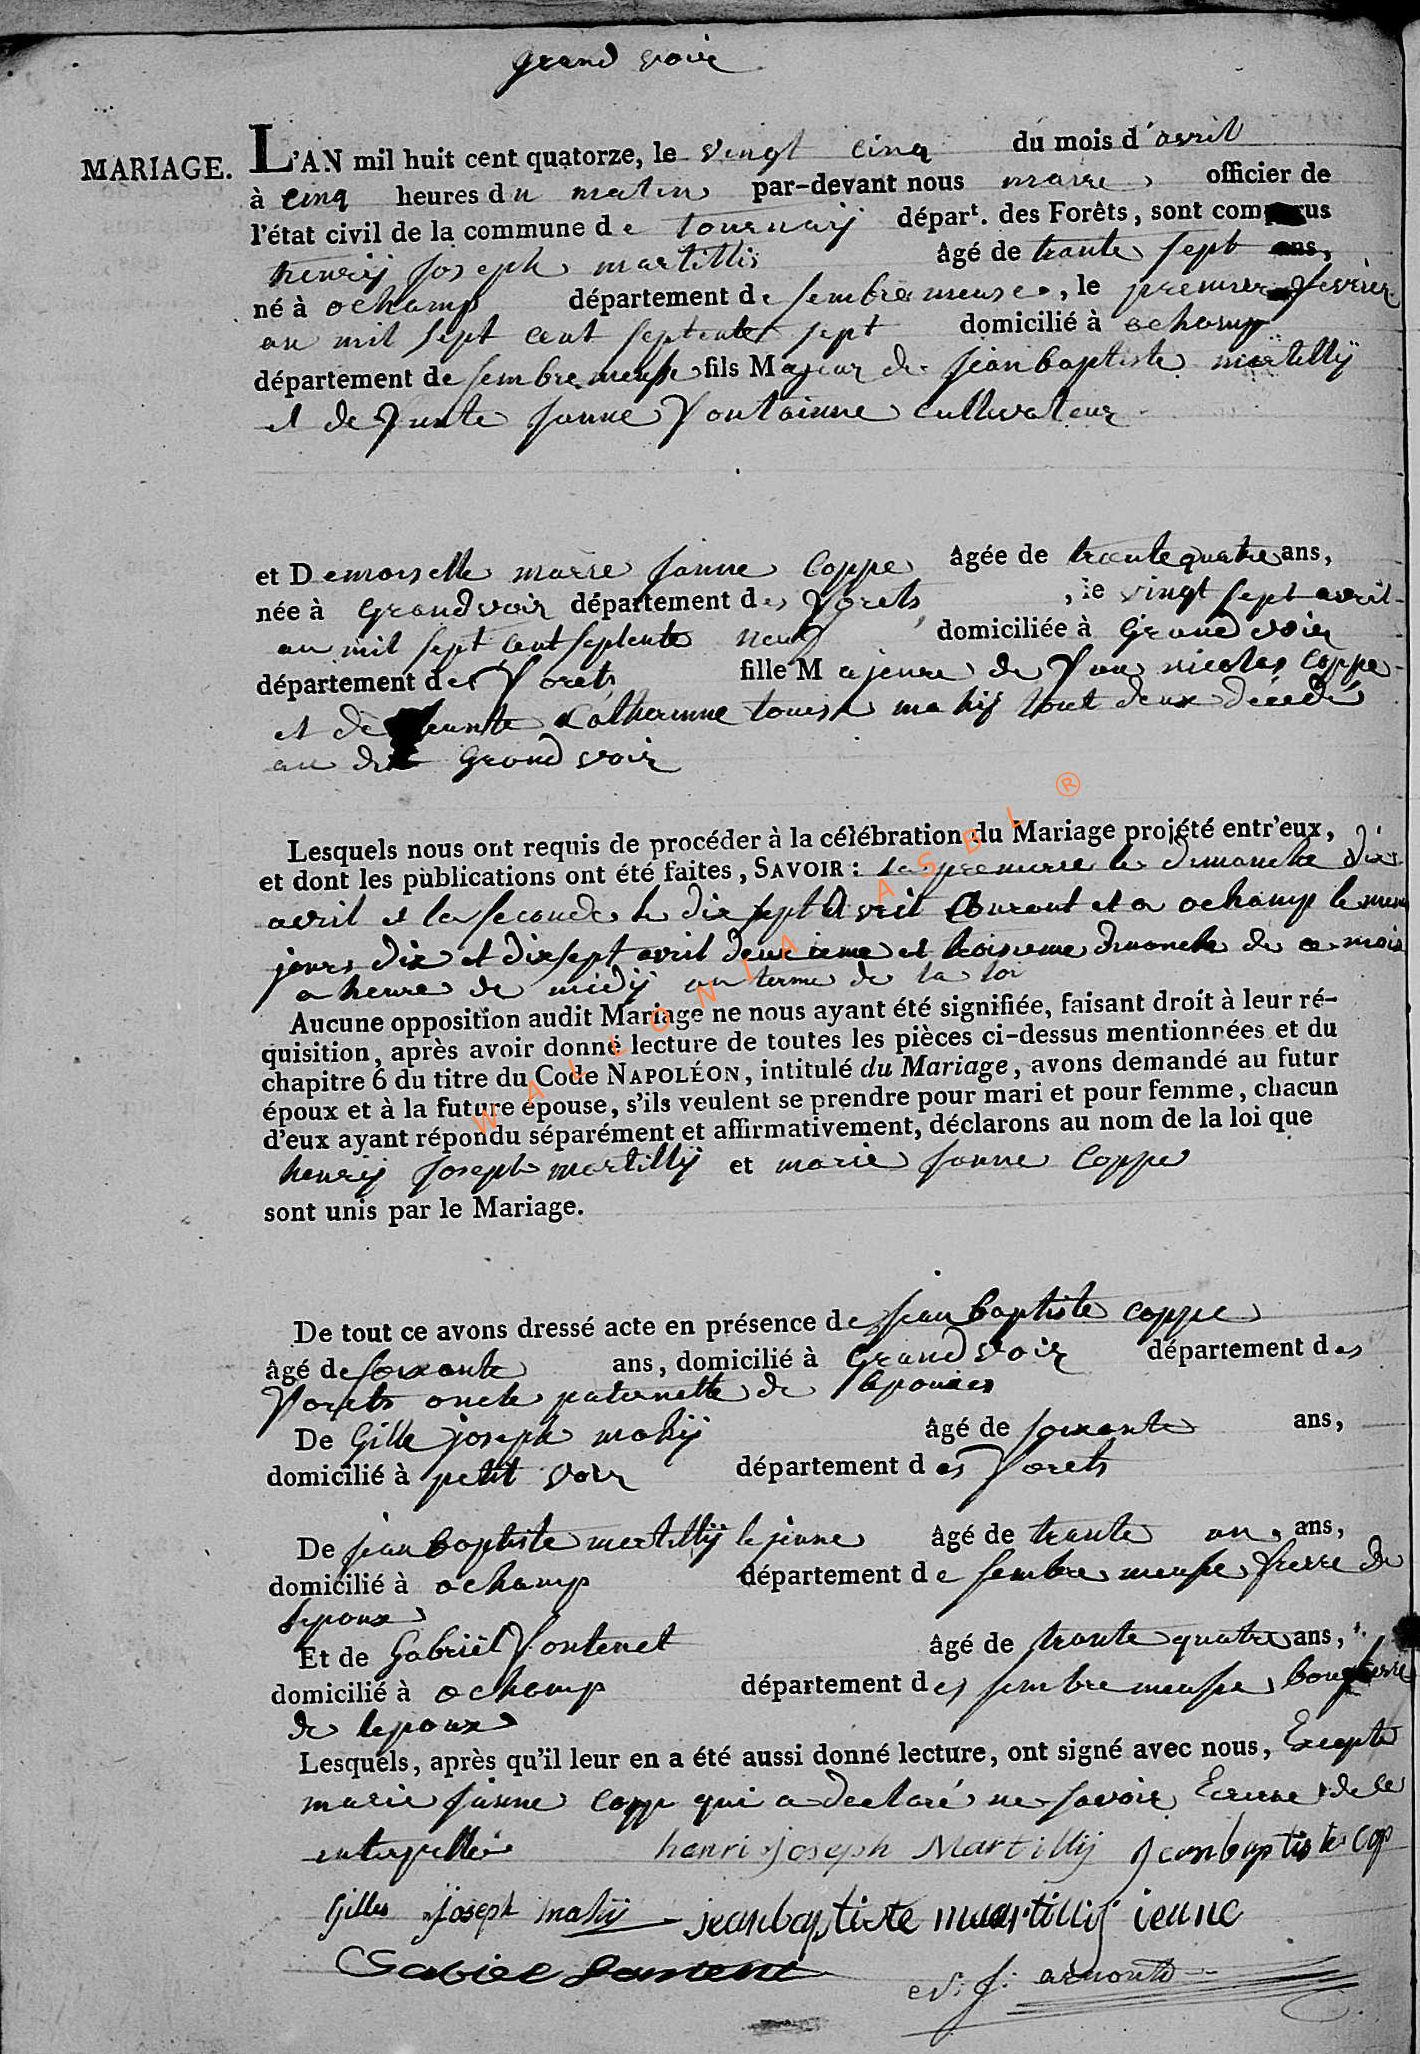 grand voir
MARIAGE. L'AN mil huit cent quatorze, le vingt cinq du mois d'avril
à cinq heures du matin par-devant nous maire, officier de
l'état civil de la commune de tournaij départ. des Forêts, sont comparus
henrij joseph martillij âgé de trante sept ans,
né à ochamp département de sembre meuse, le premier fevrier
an mil sept cent septente sept domicilié à ochamp
département de sembre meuse fils Majeur de jean baptiste martillij
et de funte janne fontainne cultivateur
et Demoiselle marie janne Coppe âgée de trante quatre ans,
née à Grandvoir département des forets, le vingt sept avril
an mil sept cent septente neuf domiciliée à Grand voir
département des forets fille Majeure de nicolas Coppe
et de feunte Catherinne mahij tout deux décedé
au dit Grand voir
Lesquels nous ont requis de procéder à la célébration du Mariage projété entr'eux,
et dont les publications ont été faites, SAVOIR: la premiere le dimanche dix
avril et la seconde le dix sept avril Courant et a ochamp le meme
jours dix et dix sept avril deuxieme et troisieme dimanche de ce mois
a heure de midij au terme de la loi
Aucune opposition audit Mariage ne nous ayant été signifiée, faisant droit à leur ré-
quisition, après avoir donné lecture de toutes les pièces ci-dessus mentionnées et du
chapitre 6 du titre du Code NAPOLÉON, intitulé du Mariage, avons demandé au futur
époux et à la future épouse, s'ils veulent se prendre pour mari et pour femme, chacun
d'eux ayant répondu séparément et affirmativement, déclarons au nom de la loi que
henrij joseph martillij et marie janne Coppe
sont unis par le Mariage.
De tout ce avons dressé acte en présence de jean baptiste coppe
âgé de soixante ans, domicilié à Grandvoir département des
forets oncle paternelle de lepouse
De Gille joseph mahij âgé de soixante ans,
domicilié à petit voir département des forets
De jean baptiste martillij le jeune âgé de trante un ans,
domicilié à ochamp département de sembre meuse frere de
lepoux
Et de Gabriël fontenet âgé de trante quatre ans,
domicilié à ochamp département des sembre meuse
de lepoux
Lesquels, après qu'il leur en a été aussi donné lecture, ont signé avec nous, Excepté
marie janne Coppe qui a declaré ne savoir Ecrire de ce
interpellée henri joseph Martillij jean baptiste Cop
Gilles joseph mahij jean baptiste martillij jeune
Gabiel arnould
WALLONIA ASBL ®